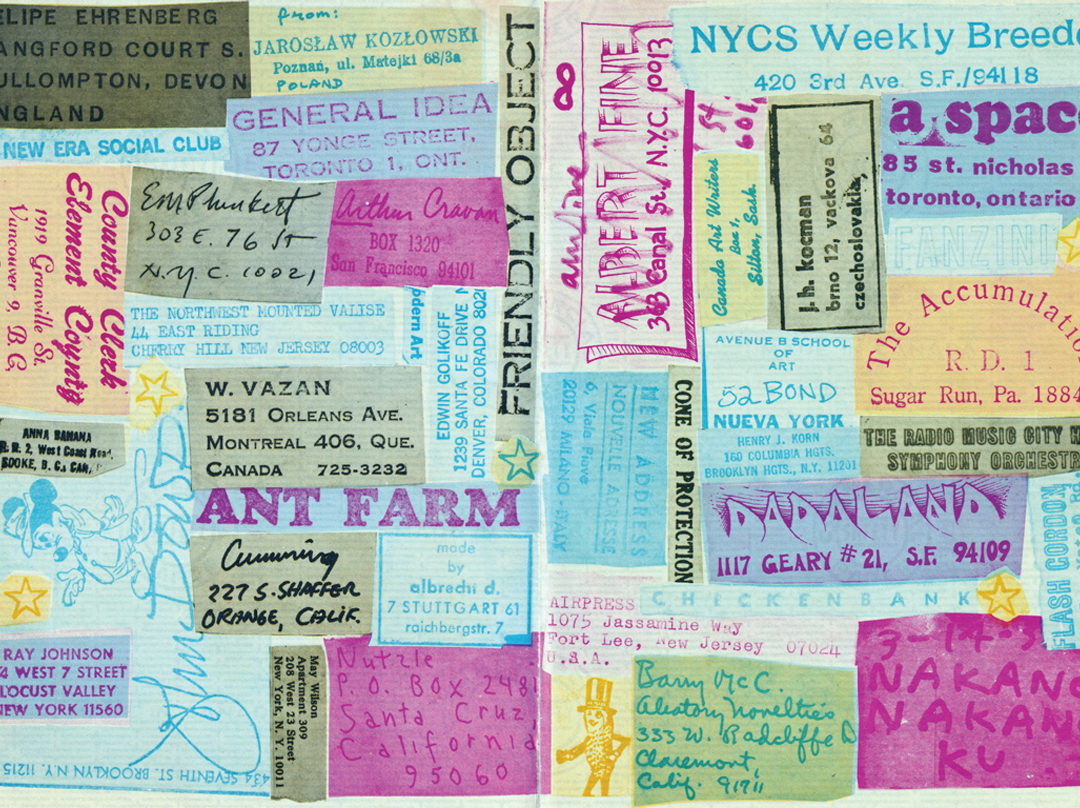 ELIPE EHRENBERG
ANGFORD COURT S.
ULLOMPTON, DEVON
NGLAND
from:
JAROSŁAW KOZŁOWSKI
Poznań, ul. Matejki 68/3a
POLAND
NEW ERA SOCIAL CLUB
GENERAL IDEA
87 YONGE STREET,
TORONTO 1, ONT.
FRIENDLY OBJECT
County Clerk
Element County
1919 Granville St.
Vancouver 9, B.C.
EM Plunkett
303 E. 76 St
N.Y.C. 10021
Arthur Cravan
BOX 1320
San Francisco 94101
THE NORTHWEST MOUNTED VALISE
44 EAST RIDING
CHERRY HILL NEW JERSEY 08003
odern Art
EDWIN GOLIKOFF
1239 SANTA FE DRIVE
DENVER, COLORADO 802
W. VAZAN
5181 ORLEANS AVE.
MONTREAL 406, QUE.
CANADA 725-3232
ANNA BANANA
R. 2, West Coast Road,
SOOKE, B.C., CAN.
ANT FARM
Cumming
227 S. SHAFFER
ORANGE, CALIF.
made
by
albrecht d.
7 STUTTGART 61
raichbergstr. 7
RAY JOHNSON
4 WEST 7 STREET
LOCUST VALLEY
NEW YORK 11560
434 SEVENTH ST. BROOKLYN N.Y. 11215
May Wilson
Apartment 309
208 West 23 Street
New York, N.Y. 10011
Nutzle
P.O. BOX 2481
Santa Cruz,
California
95060
ALBERT FINE
363 Canal St. N.Y.C. 10013
NYCS Weekly Breede
420 3rd Ave. S.F./94118
Canada Art Writers
Box 1,
Silton, Sask.
j. h. kocman
brno 12, vackova 64
czechoslovakia
a space
85 st. nicholas
toronto, ontario
FANZINI
The Accumulatio
R. D. 1
Sugar Run, Pa. 1884
AVENUE B SCHOOL
OF
ART
52 BOND
NUEVA YORK
HENRY J. KORN
160 COLUMBIA HGTS.
BROOKLYN HGTS., N.Y. 11201
THE RADIO MUSIC CITY H
SYMPHONY ORCHESTR
NEW ADDRESS
NOUVELLE ADRESSE
6, Viale Piave
20129 MILANO - ITALY
CONE OF PROTECTION
DADALAND
1117 GEARY #21, S.F. 94109
FLASH GORDON
CHECKENBANK
AIRPRESS
1075 Jassamine Way
Fort Lee, New Jersey 07024
U.S.A.
Barry McC.
Aleatory Novelties
333 W. Radcliffe D
Claremont,
Calif. 91711
3-14-3
NAKANO
NAKANO
KU